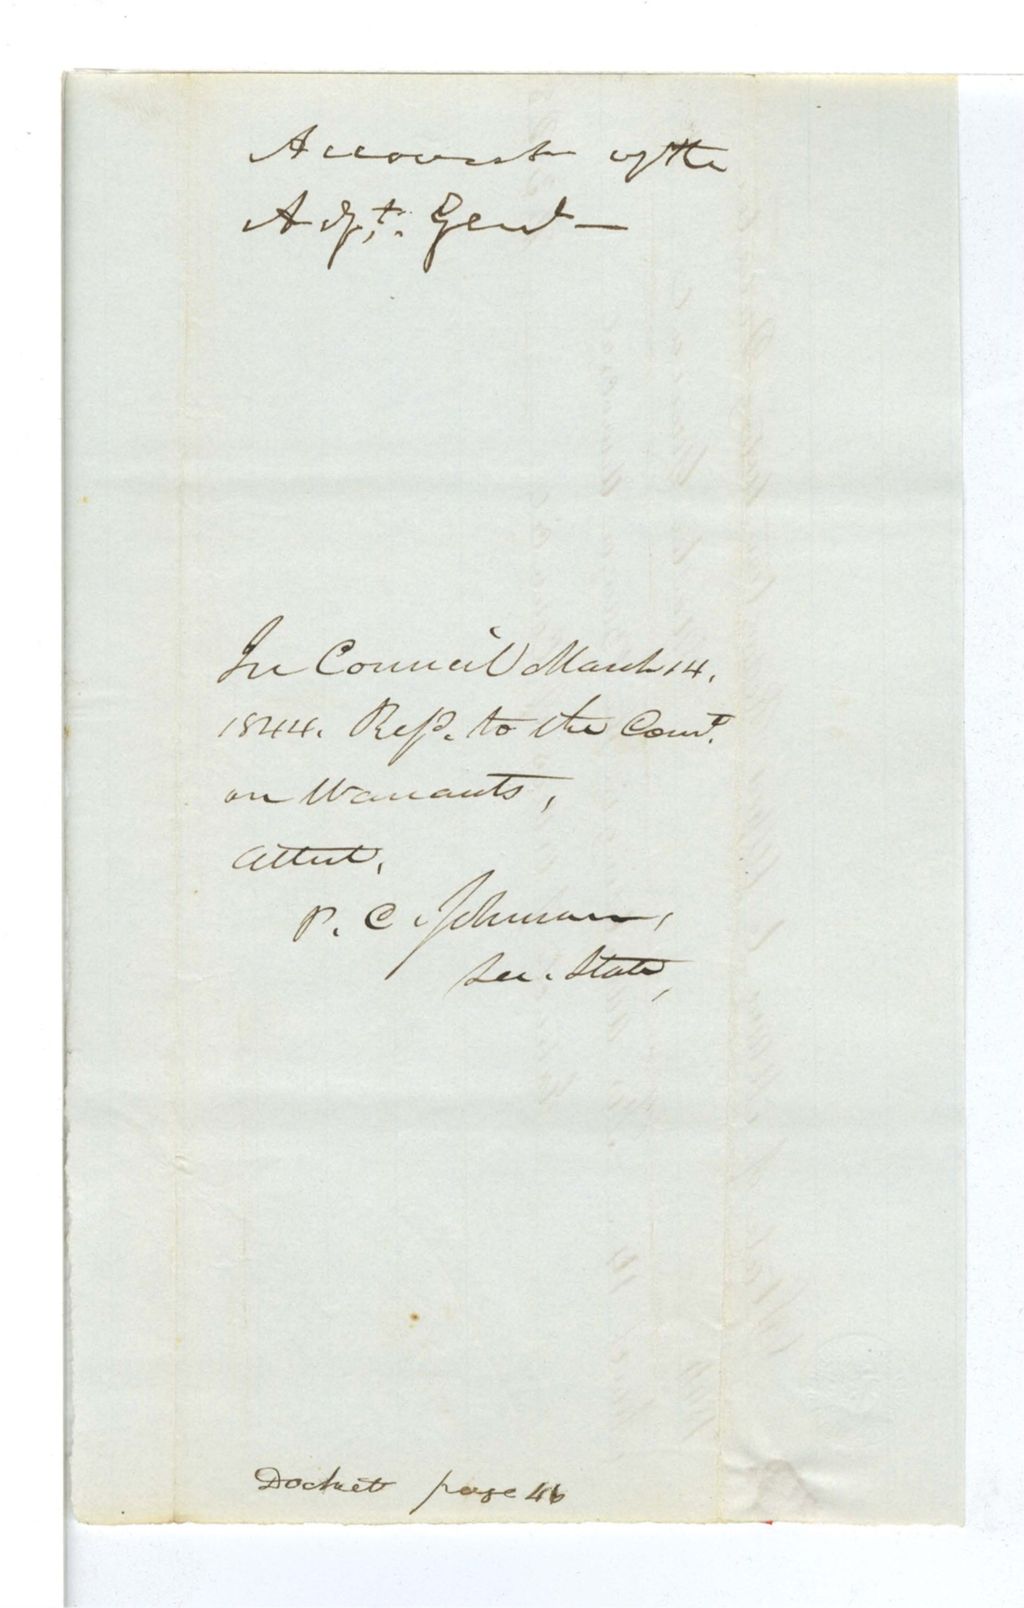 Account of the
Adjt. Genl —
In Council March 14,
1844. Ref. to the Comt.
on Warrants,
Attest,
P. C. Johnson,
Sec. State,
Docket page 46